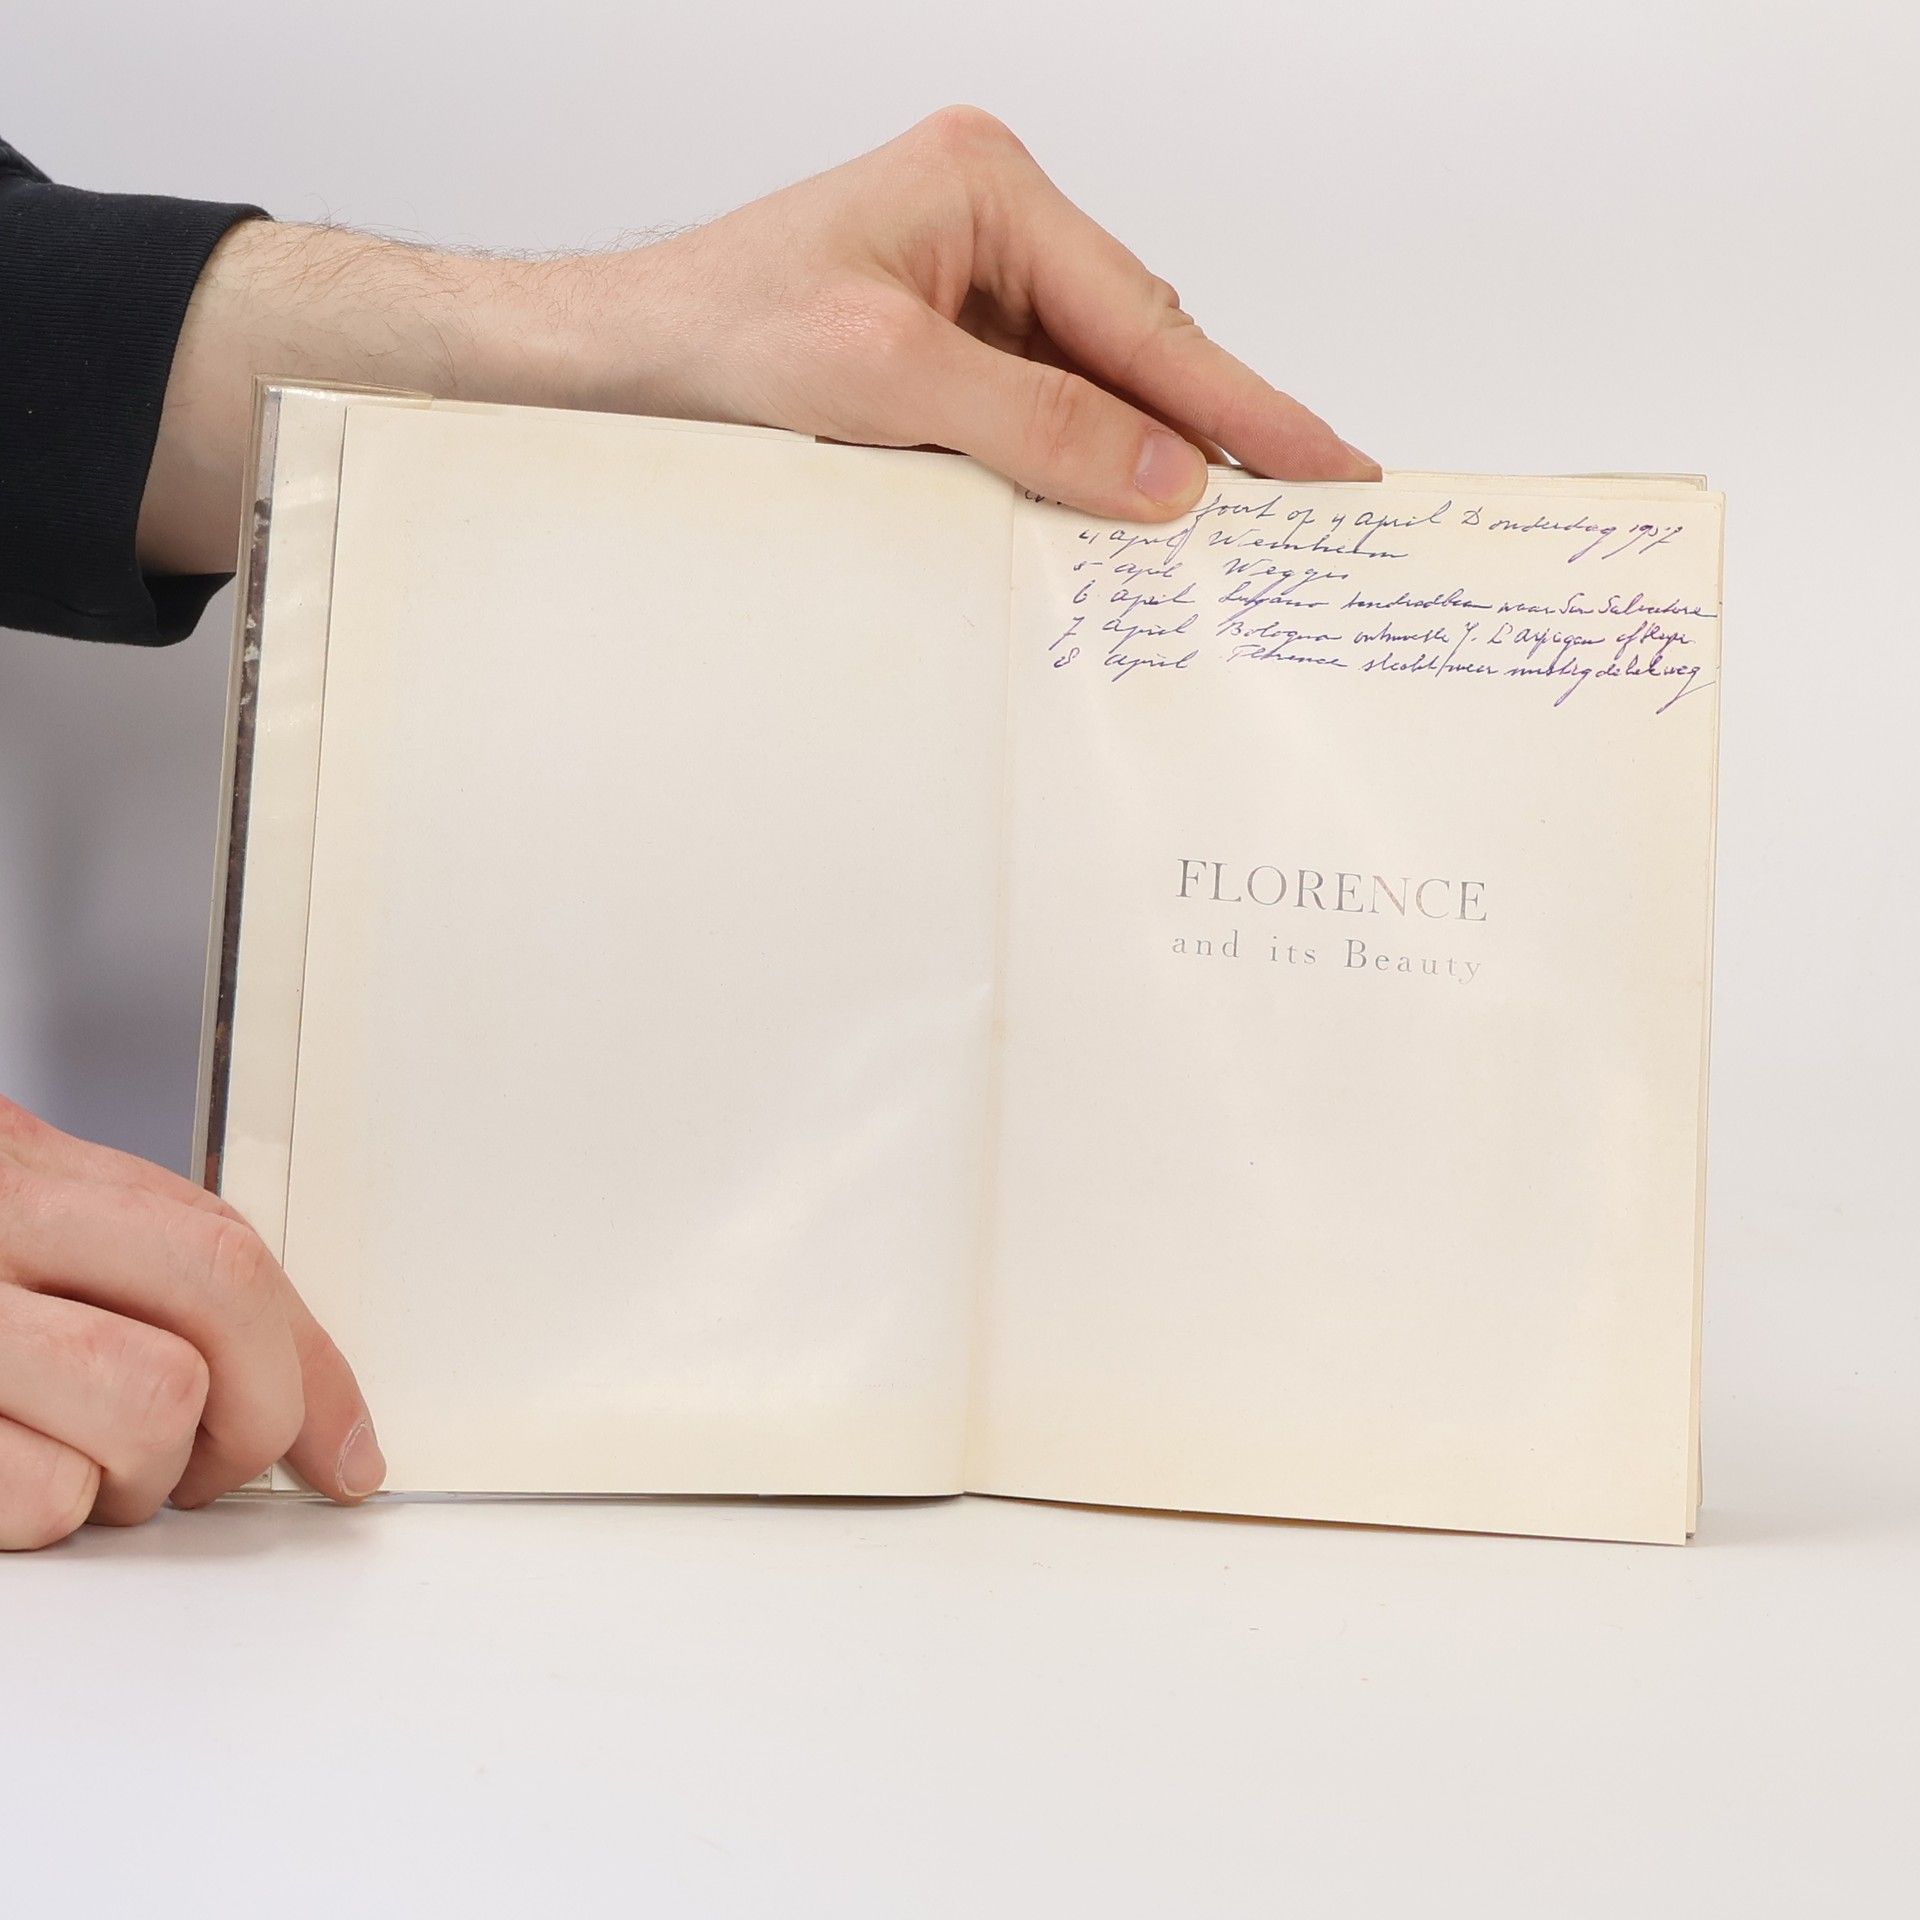 op 4 april Donderdag 1957
4 april Weinheim
5 april Weggis
6 april Lugano tandradbaan naar San Salvatore
7 april Bologna
8 april Florence slecht weer mistig de hele weg
FLORENCE
and its Beauty